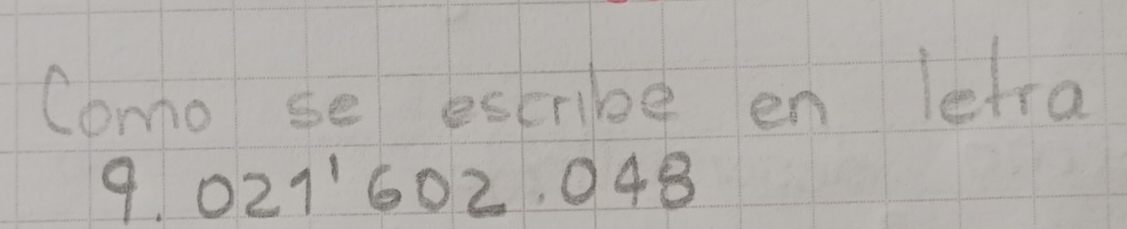 Como se escribe en letra
9.021'602.048